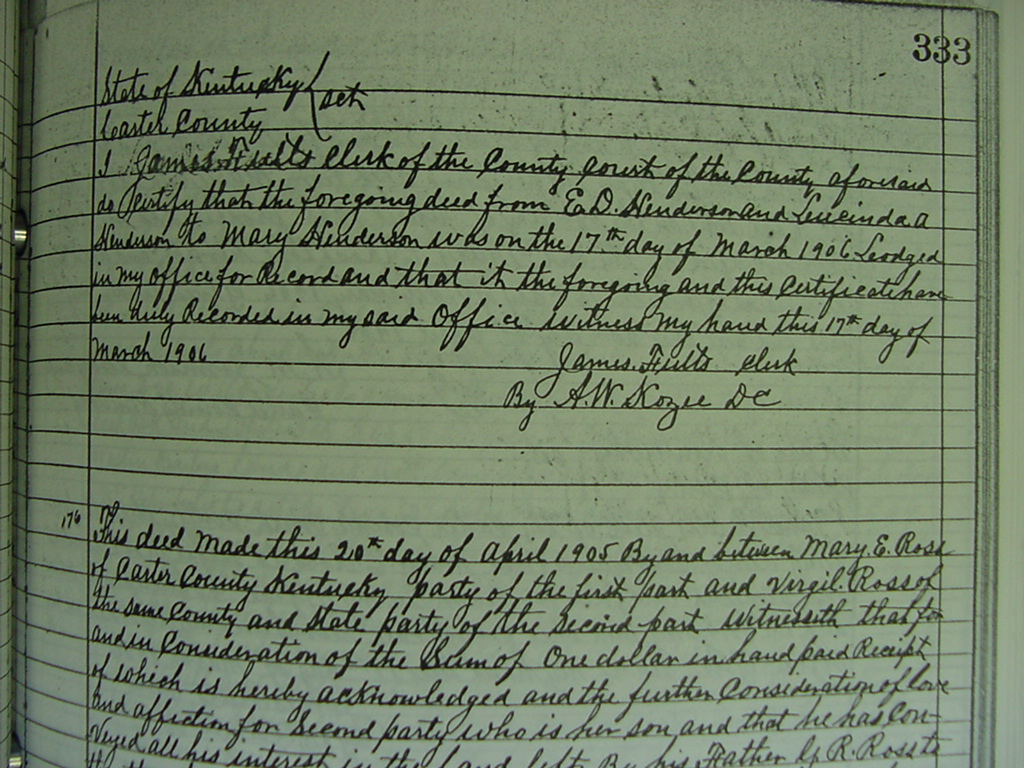 333
State of Kentucky
Carter County } sct
I James Fults Clerk of the County Court of the County aforesaid
do Certify that the foregoing deed from E.D. Henderson and Lucinda A
Henderson to Mary Henderson was on the 17th day of March 1906 Lodged
in my office for Record and that it the foregoing and this Certificate have
been duly Recorded in my said Office Witness My hand this 17th day of
March 1906
James Fults Clerk
By A.W. Kozee DC
176
This deed made this 20th day of April 1905 By and between Mary E. Ross
of Carter County Kentucky party of the first part and Virgil Ross of
the same County and State party of the Second part Witnesseth that for
and in Consideration of the Sum of One dollar in hand paid Receipt
of which is hereby acknowledged and the further Consideration of love
and affiction for Second party who is her son and that he has Con-
veyed all his interest in the land left By his Father R. Ross to